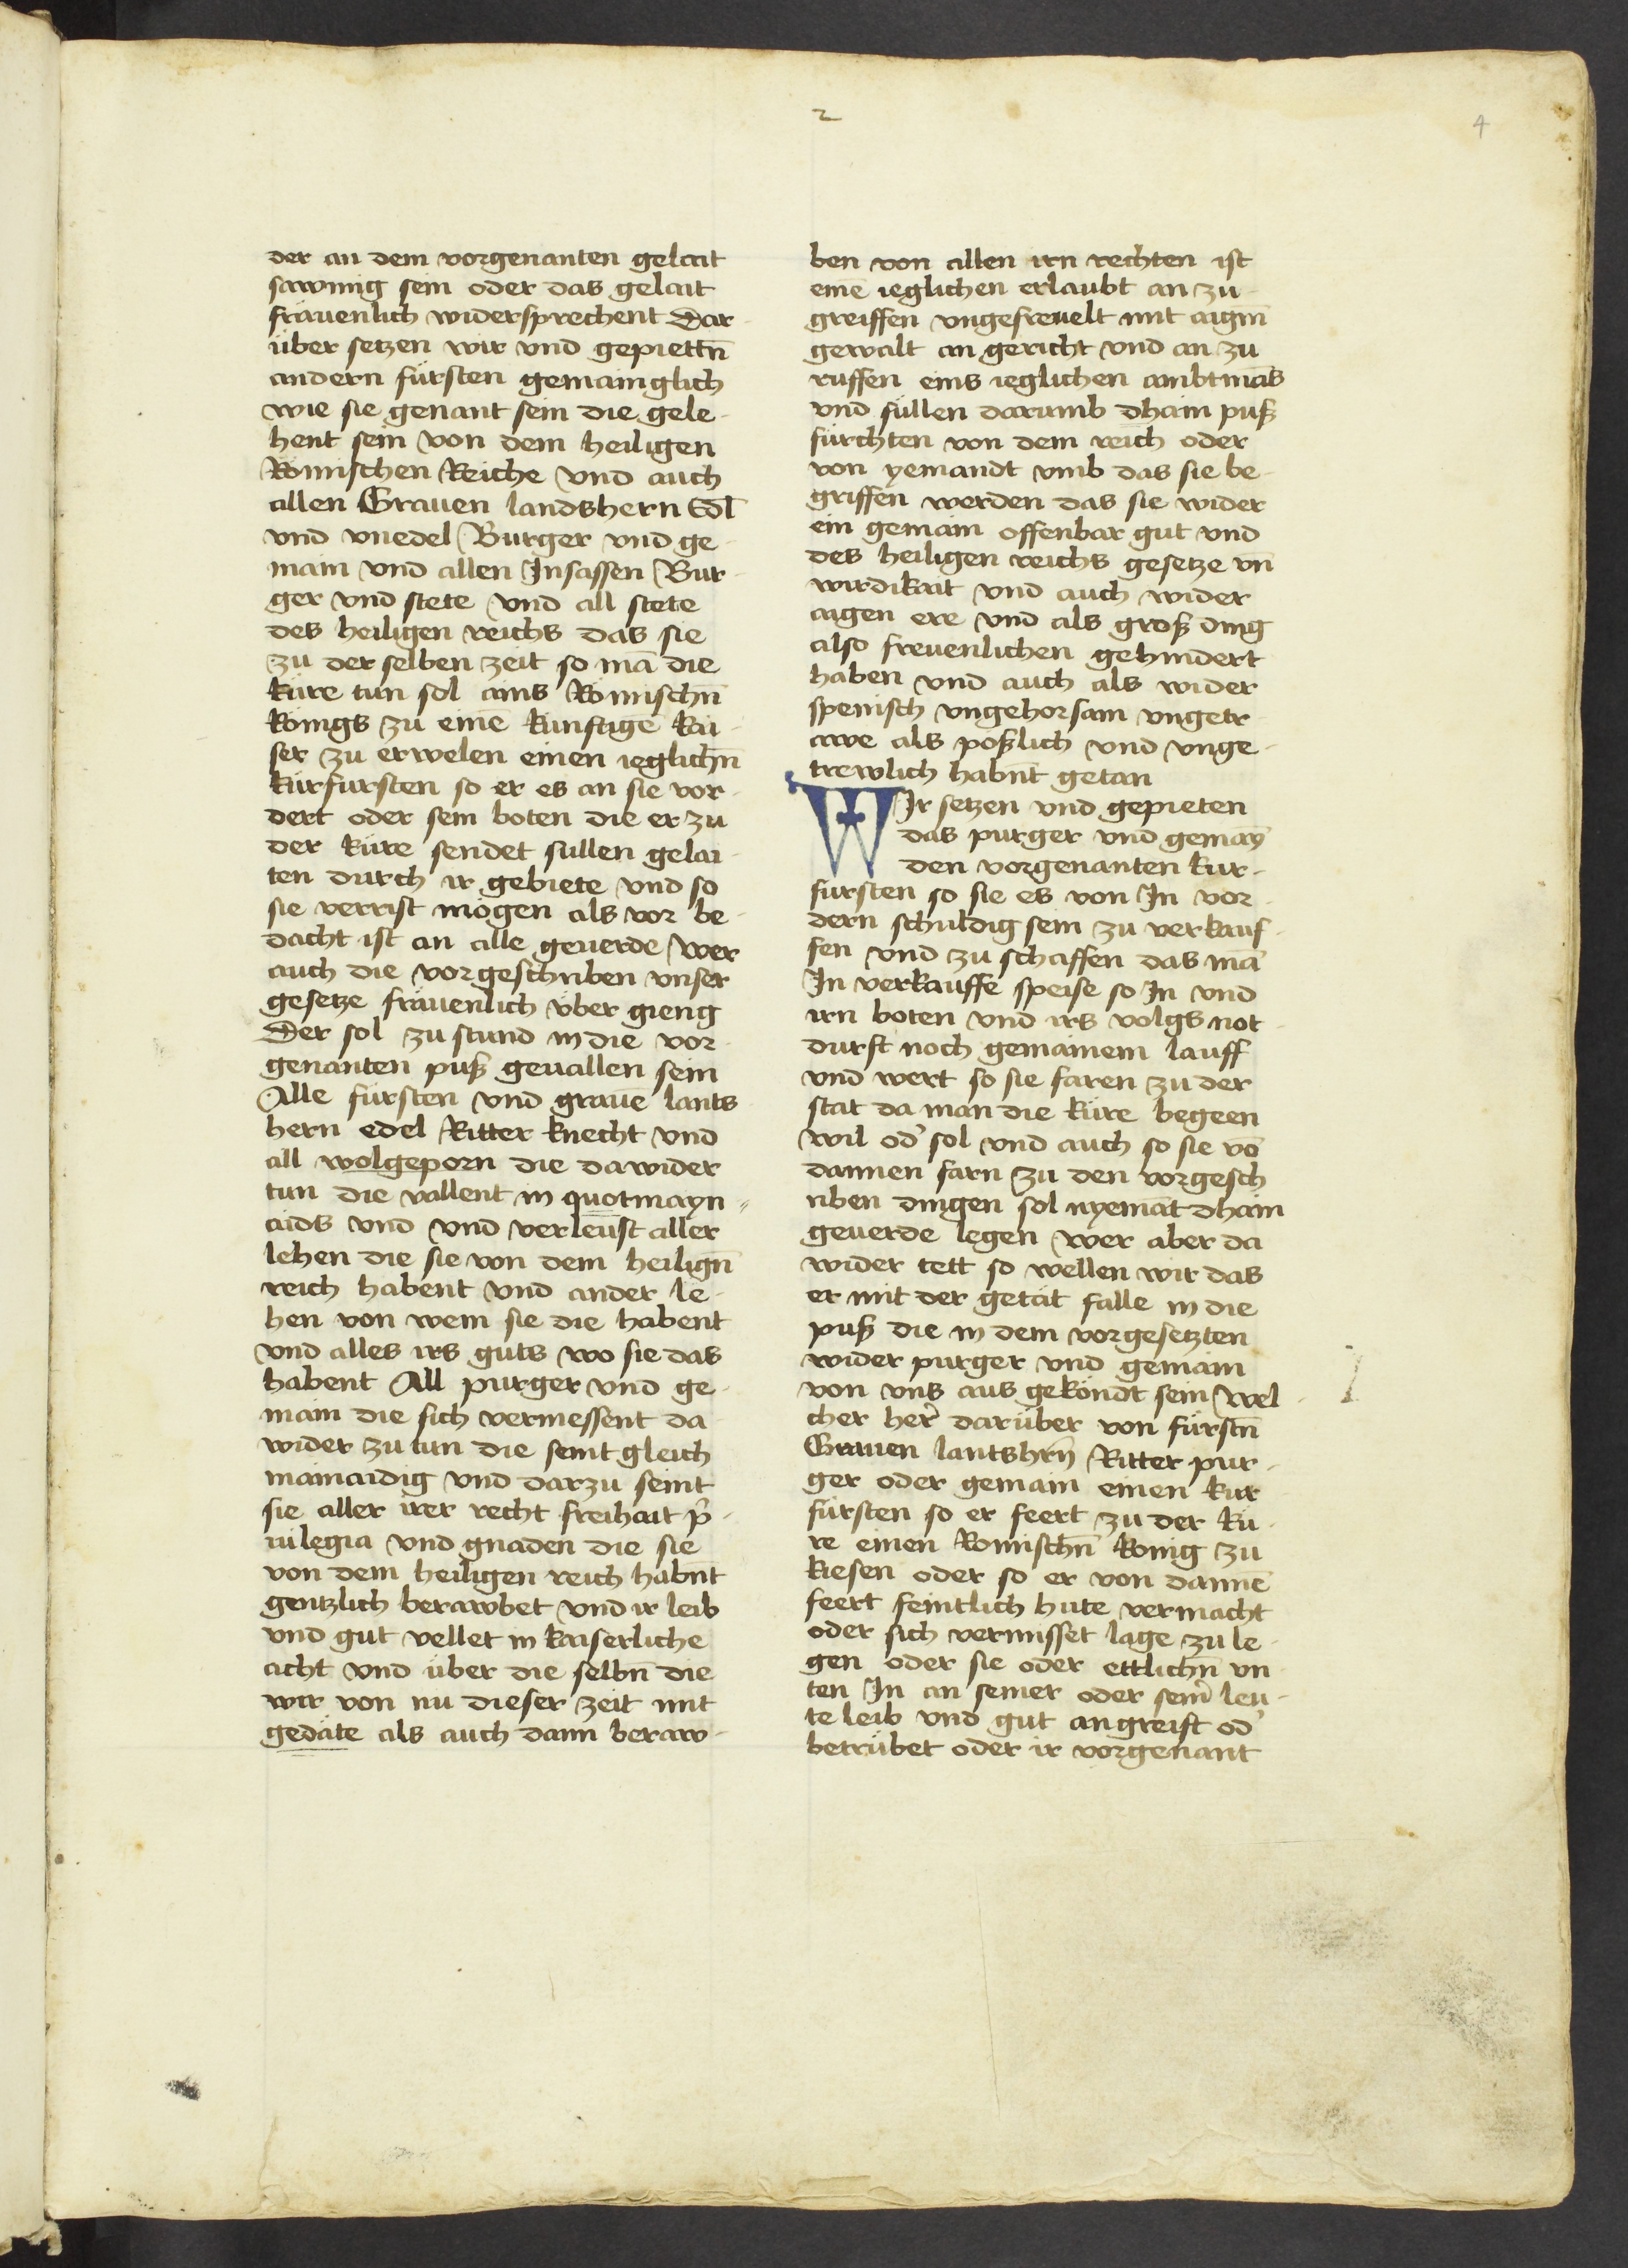 2
4
der an dem vorgenanten gelait
sawmig sein oder das gelait
fräuenlich widersprechent Dar-
über setzen wir vnd gepiettn̄
andern fürsten gemainglich
wie sie genant sein die gele-
hent sein von dem heiligen
Römischen Reiche vnd auch
allen Grauen landshern Edl̄
vnd vnedel Burger vnd ge-
main vnd allen Insassen Bur-
ger vnd stete vnd all stete
des heiligen reichs das sie
zu der selben zeit so mā die
küre tun sol ains Römischn̄
königs zu einē kunftigē kai-
ser zu erwelen einen ieglichn̄
kürfursten so er es an sie vor-
dert oder sein boten die er zu
der küre sendet sullen gelai-
ten durch ir gebiete vnd so
sie verrist mögen als vor be-
dacht ist an alle geuerde wer
auch die vorgeschriben vnser
gesetze fräuenlich über gieng
Der sol zu stund in die vor-
genanten puß geuallen sein
Alle fürsten vnd grauē lants-
hern edel Ritter knecht vnd
all wolgeporn die dawider
tun die vallent in quotmayn-
aids vnd vnd verleust aller
lehen die sie von dem heilign̄
reich habent vnd ander le-
hen von wem sie die habent
vnd alles irs guts wo sie das
habent All purger vnd ge-
main die sich vermessent da
wider zu tun die seint gleich
mainaidig vnd darzu seint
sie aller irer recht freihait p̄-
uilegia vnd gnaden die sie
von dem heiligen reich habn̄t
gentzlich berawbet vnd ir leib
vnd gut vellet in kaiserliche
acht vnd über die selbn̄ die
wir von nu dieser zeit mit
gedäte als auch dann beraw-
ben von allen irn rechten ist
einē ieglichen erlaubt an zu
greiffen vngefreuelt mit aigm̄
gewalt an gericht vnd an zu
ruffen eins ieglichen ambtmās
vnd sullen darumb dhain puß
fürchten von dem reich oder
von yemandt vmb das sie be-
griffen werden das sie wider
ein gemain offenbar gut vnd
des heiligen reichs gesetze vn̄
wirdikait vnd auch wider
aigen ere vnd als groß ding
also freuenlichen gehindert
haben vnd auch als wider
spenisch vngehorsam vngetr
awe als poßlich vnd vnge-
trewlich habn̄t getan
WIr setzen vnd gepieten
das purger vnd gemaȳ
den vorgenanten kur-
fursten so sie es von In vor-
dern schuldig sein zu verkauf-
fen vnd zu schaffen das mā
In verkauffe speise so In vnd
irn boten vnd irs volgs not-
durft noch gemainem lauff
vnd wert so sie faren zu der
stat da man die küre begeen
wil od' sol vnd auch so sie vō
dannen farn zu den vorgesch
riben dingen sol nyemāt dhain
geuerde legen wer aber da
wider tett so wellen wir das
er mit der getät falle in die
puß die in dem vorgesetzten
wider purger vnd gemain
von vns aus gekündt sein wel-
cher her' darüber von fürstn̄
Grauen lantshrn̄ Ritter pur-
ger oder gemain einen kur-
fürsten so er feert zu der kü-
re einen Romischn̄ konig zu
kiesen oder so er von dannē
feert feintlich hute vermacht
oder sich vermisset lage zu le-
gen oder sie oder ettlichn̄ vn
ten In an seiner oder sein' leu-
te leib vnd gut angreift od'
betrübet oder ir vorgenant